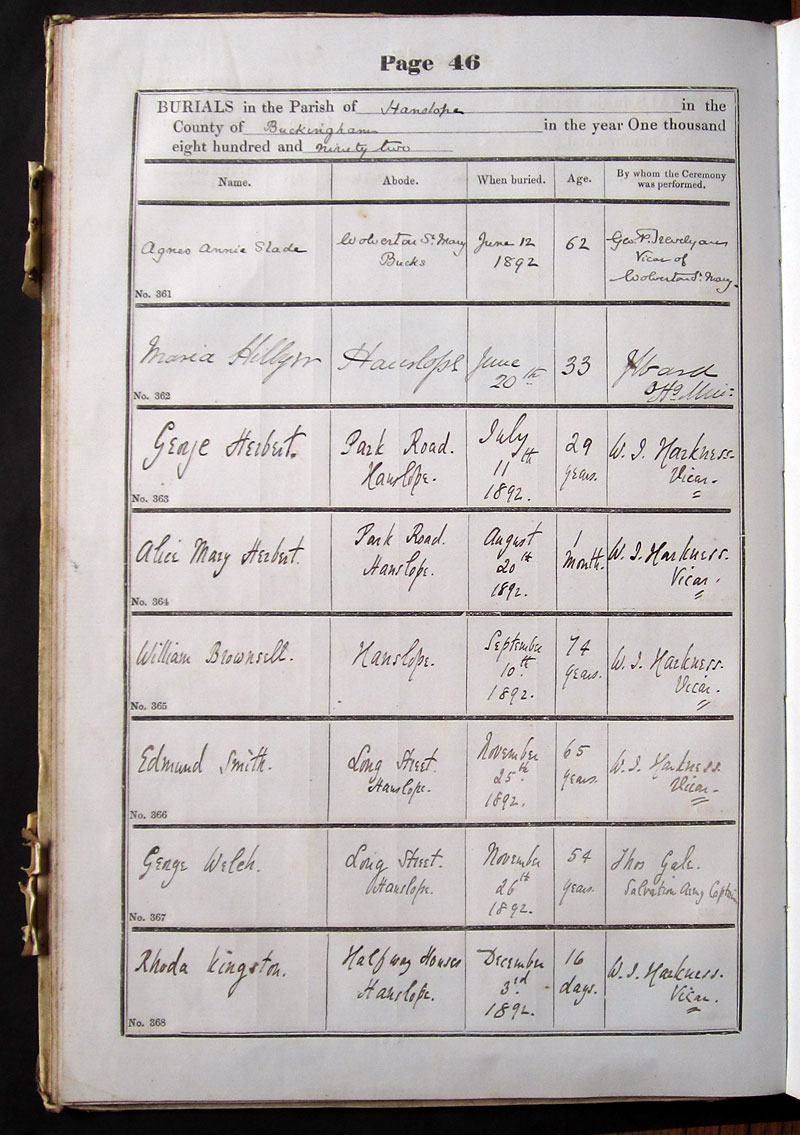 Page 46
BURIALS in the Parish of Hanslope in the
County of Buckingham in the year One thousand
eight hundred and ninety two
Name. Abode. When buried. Age. By whom the Ceremony was performed.
Agnes Annie Slade
Wolverton St. Mary
Bucks
June 12
1892
62
Geo. P. Trevelyan
Vicar of
Wolverton St. Mary.
No. 361
Maria Hillyer
Hanslope
June
20th
33
No. 362
George Herbert.
Park Road.
Hanslope.
July
11th
1892.
29
years.
W. J. Harkness.
Vicar.
No. 363
Alice Mary Herbert.
Park Road.
Hanslope.
August
20th
1892.
1
month.
W. J. Harkness.
Vicar.
No. 364
William Brownsell.
Hanslope.
September
10th
1892.
74
years.
W. J. Harkness.
Vicar.
No. 365
Edmund Smith.
Long Street.
Hanslope.
November
25th
1892.
65
years.
W. J. Harkness.
Vicar.
No. 366
George Welch.
Long Street.
Hanslope.
November
26th
1892.
54
years.
Thos Gale.
Salvation Army Captain
No. 367
Rhoda Kingston.
Halfway Houses
Hanslope.
December
3rd
1892.
16
days.
W. J. Harkness.
Vicar.
No. 368